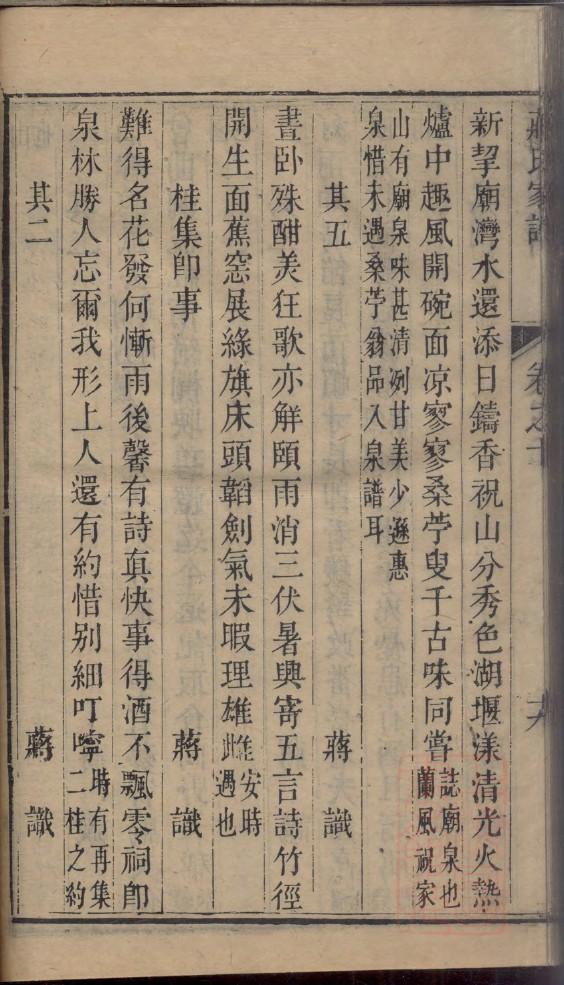 蔣氏家譜 卷之十 十六
新挈廟灣水還添日鑄香祝山分秀色湖堰漾清光火熱
爐中趣風開碗面凉寥寥桑苧叟千古味同嘗誌廟泉也蘭風祝家
山有廟泉味甚清冽甘美少遜惠
泉惜未遇桑苧翁品入泉譜耳
其五 蔣識
晝卧殊酣美狂歌亦解頤雨消三伏暑興寄五言詩竹徑
開生面蕉窓展綠旗床頭韜劍氣未暇理雄雌安時遇也
桂集卽事 蔣識
難得名花發何慚雨後馨有詩真快事得酒不飄零祠卽
泉林勝人忘爾我形上人還有約惜别細叮嚀時有再集二桂之約
其二 蔣識